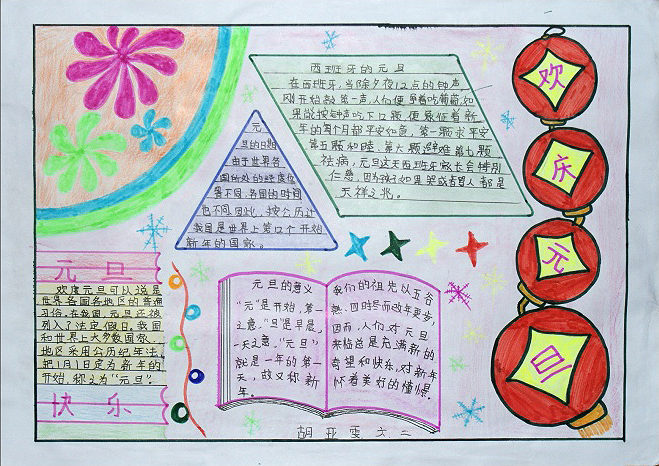 西班牙的元旦
在西班牙,当除夕夜12点的钟声
刚开始敲第一声,人们便争着吃葡萄,如
果能按钟声吃下12颗,便象征着新
年的每个月都平安如意,第一颗求平安
第五颗和睦,第六颗避难第七颗
祛病,元旦这天西班牙家长会特别
仁爱,因为孩子如果哭或者骂人都是
天祥之兆。
元
旦的日期
由于世界各
国所处的经度位
置不同,各国的时间
也不同,因此,按公历计
我国是世界上第12个开始
新年的国家。
元旦
欢度元旦可以说是
世界各国各地区的普遍
习俗,在我国,元旦还被
列入了法定假日。我国
和世界上大多数国家
地区采用公历纪年法,
把1月1日定为新年的
开始,称之为“元旦”。
快乐
元旦的意义
“元”是开始,第一
之意,“旦”是早晨,
一天之意,“元旦”
就是一年的第一
天,故又称新
年。
我们的祖先以五谷
熟,四时尽而改年更岁,
因而,人们对元旦
来临总是充满新的
希望和快乐,对新年
怀着美好的憧憬.
欢
庆
元
旦
胡亚雯 六二